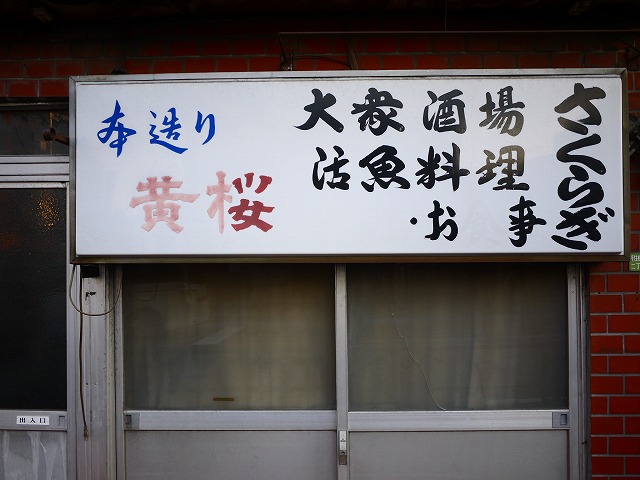 さくらぎ
大衆酒場
活魚料理
・お事
本造り
黄桜
出入口